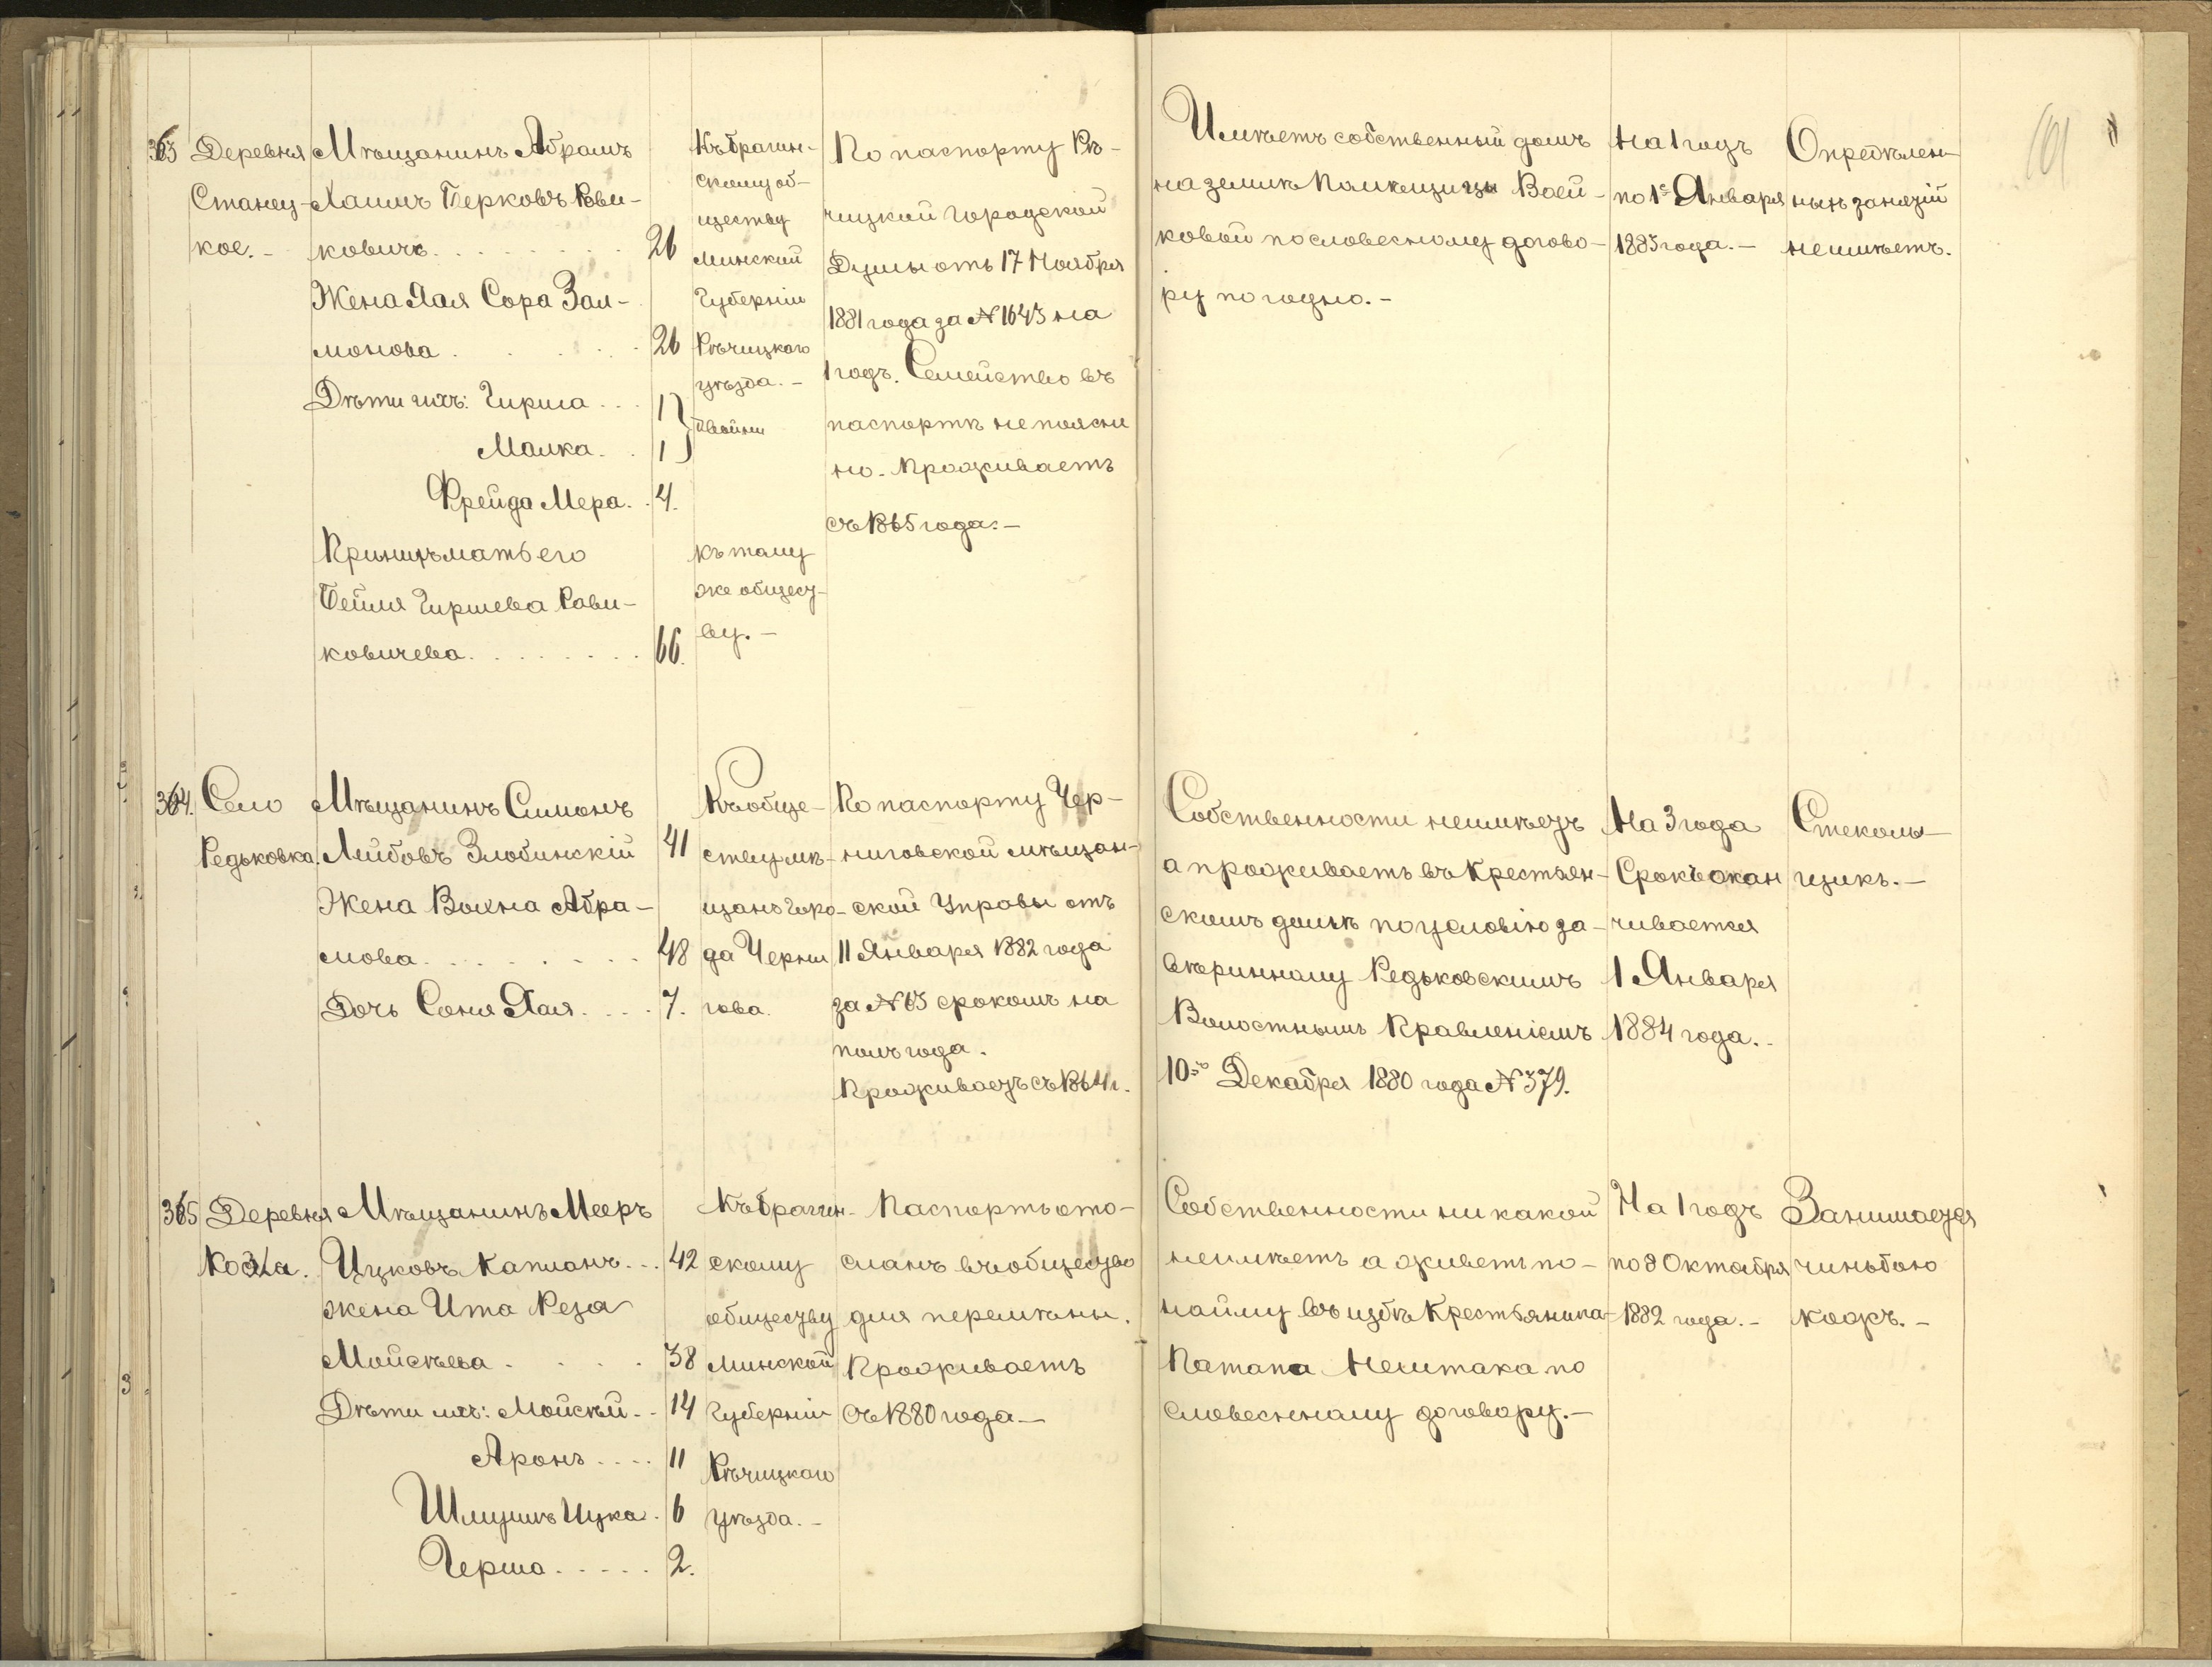 101
363
Деревня
Станец-
кое.-
Мѣщанинъ Абрамъ
Хаимъ Берковъ Рови-
ковичъ. 26
Жена Хая Сора Зал-
монова 26
Дѣти ихъ: Гирша 1
Малка 1
двойни
Фрейда Мера. 4.
мать его
Бейля Гиршева Рови-
ковичева 66.
Къ Брагин-
скому об-
ществу
Минский
Губерніи
Рѣчицкаго
уѣзда.-
къ тому
же общест-
ву.-
По паспорту Рѣ-
чицкой Городской
Думы отъ 17 Ноября
1881 года за № 1643 на
1 годъ. Семейство въ
паспортѣ не поясне
но. Проживаетъ
съ 1865 года.-
Имѣетъ собственный домъ
на землѣ Помѣщицы Воей-
ковой по словесному догово-
ру погодно.-
На 1 годъ
по 1е Января
1883 года.-
Опредѣлен-
ныхъ занятій
неимѣетъ.
364.
Село
Редьковка.
Мѣщанинъ Симонъ
Лейбовъ Злобинскій 41
Жена Вихна Абра-
мова 48
Дочь Соня Хая 7.
Къ обще-
ству мѣ-
щанъ горо-
да Черни
гова.
По паспорту Чер-
ниговской мѣщан-
ской Управы отъ
11 Января 1882 года
за № 63 срокомъ на
полъ года.
Проживаетъ съ 1864 г.
Собственности неимѣетъ
а проживаетъ въ Крестьян-
скомъ домѣ по условію за-
вѣринному Редьковскимъ
Волостнымъ Правленіемъ
10го Декабря 1880 года № 379.
На 3 года
Срокъ окан
чивается
1 Января
1884 года.
Стеколь-
щикъ.-
365
Деревня
Мѣщанинъ Мееръ
Ицковъ Капланъ 42
жена Ита Реза
Мойсѣева 38
Дѣти ихъ: Мойсѣй 14
Аронъ 11
Шлиумъ Ицка 6
Герша 2.
Къ Брагин-
скому
обществу
Минской
Губерніи
Рѣчицкаго
уѣзда.-
Паспортъ ото-
сланъ въ общество
для перемѣны.
Проживаетъ
съ 1880 года-
Собственности никакой
неимѣетъ а живетъ по-
найму въ избѣ Крестьянина-
Патапа Нештака по
словесному договору.-
На 1 годъ
по 8 Октября
1882 года.-
Занимается
чиньбою
кожъ.-